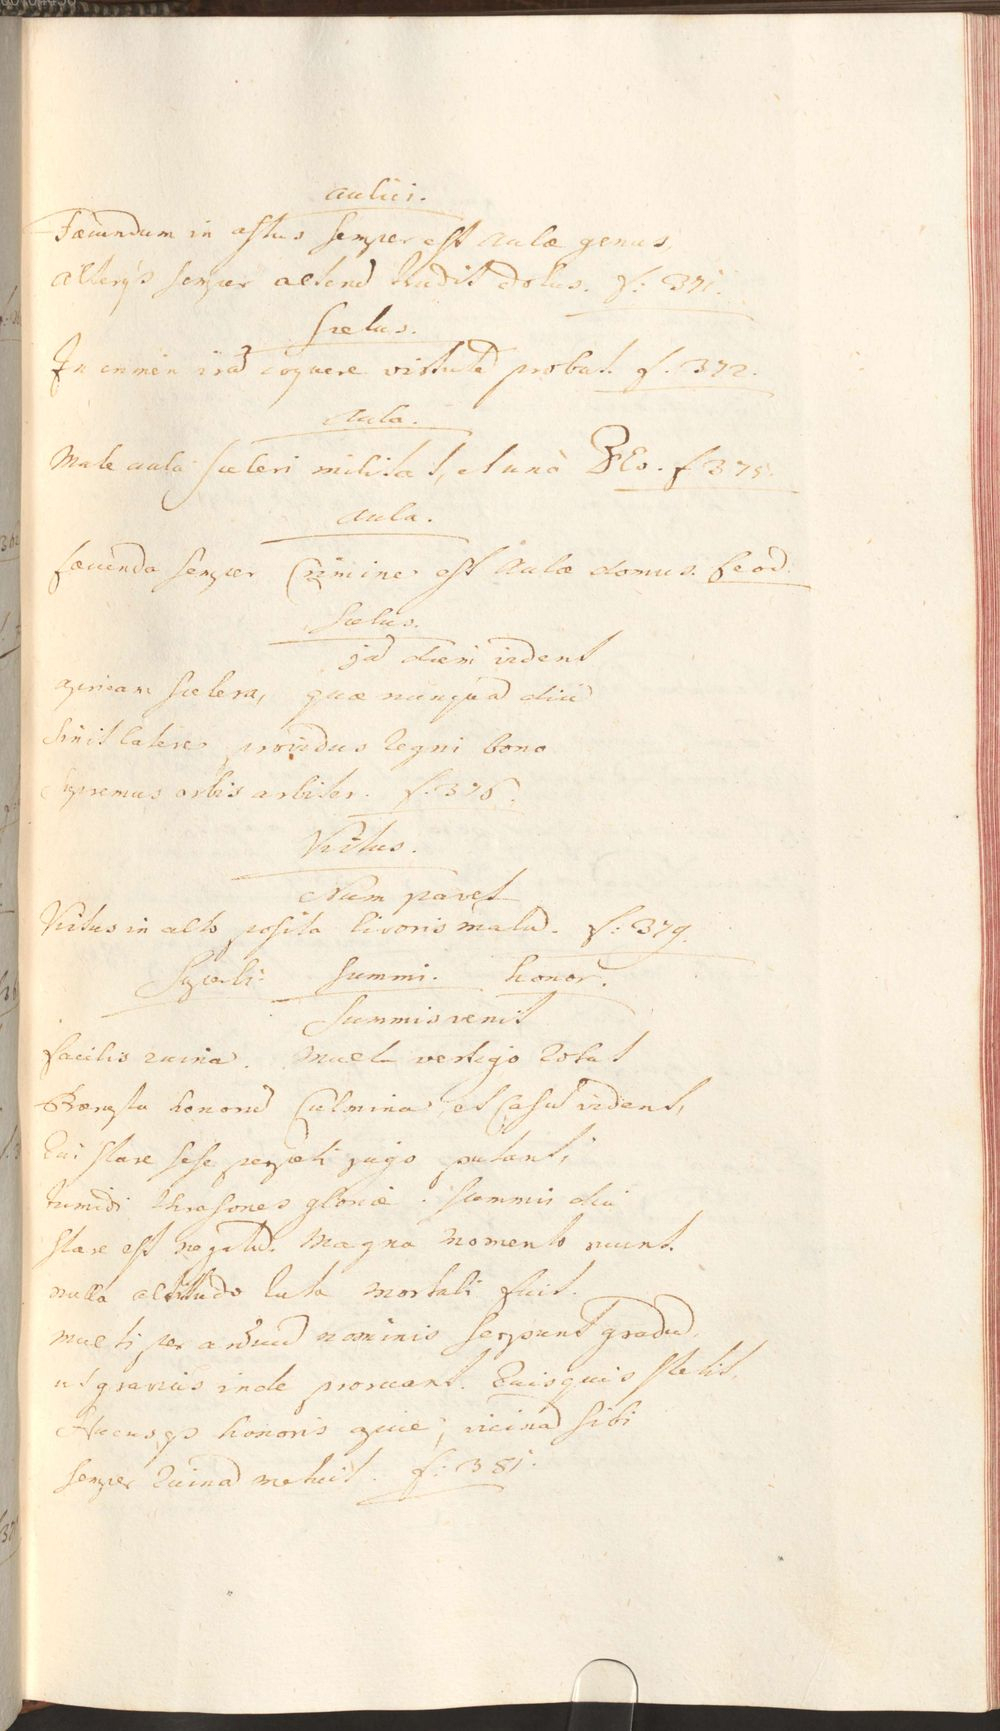 Aulici.
Fæcundum in astus semper est Aulæ genus,
alterq́s semper alterū trudit dolus. f: 371.
Scelus.
In crimen irā coquere virtutē probat. f. 372.
Aula.
Male aula sceleri militat, et unà DEo. f 375.
Aula.
fœcunda semper Crimine est Aulæ domus. feod.
Scelus.
jā diem vident
apricam scelera, quæ nunquā diù
Sinit latere, providus Regni bono
Supremus orbis arbiter. f. 376.
Virtus.
Num pavet
Virtus in alto posita livoris malū. f: 379.
Superbi Summi. honor.
Summis venit
facilis ruina. Multa vertigo rotat
Prærupta honorū Culmina, et Casū vident,
Qui stare sese perpeti jugo putant,
tumidi thrasones gloriæ. Summis diu
Stare est negatū. Magna momento ruunt.
nulla altitudo tuta mortali fuit.
multi per arduū nominis serpunt gradū,
ut graviùs inde proruant. Quisquis stetit,
Hucusqs honoris apice, vicinā sibi
semper Ruinā metuit. f: 381.